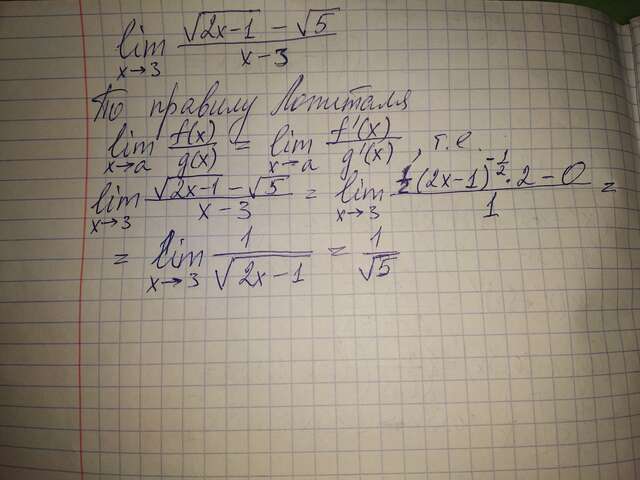 lim x→3 (√(2x-1) - √5)/(x-3)
По правилу Лопиталя
lim x→a f(x)/g(x) = lim x→a f'(x)/g'(x), т.е.
lim x→3 (√(2x-1) - √5)/(x-3) = lim x→3 (½(2x-1)^(-½)·2 - 0)/1 =
= lim x→3 1/√(2x-1) = 1/√5